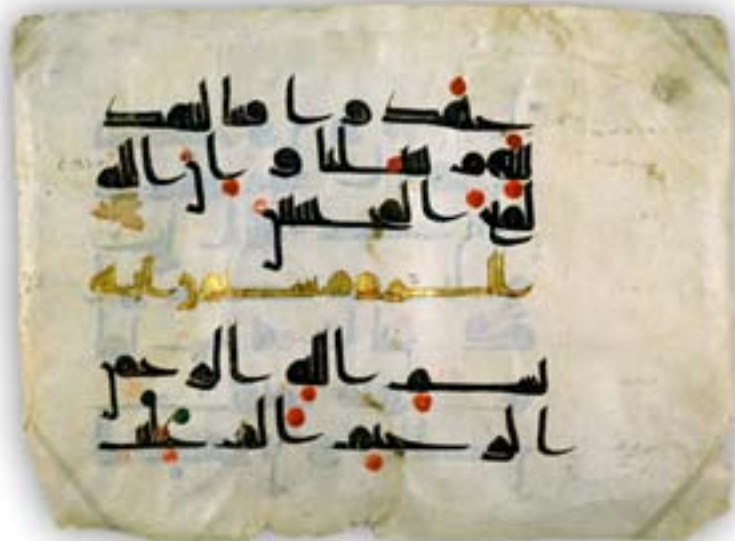 جهدوا فينا لنهد
ينهم سبلنا وان الله
لمع المحسنين
الروم ستون اية
بسم الله الرحمن
الرحيم الم غلبت